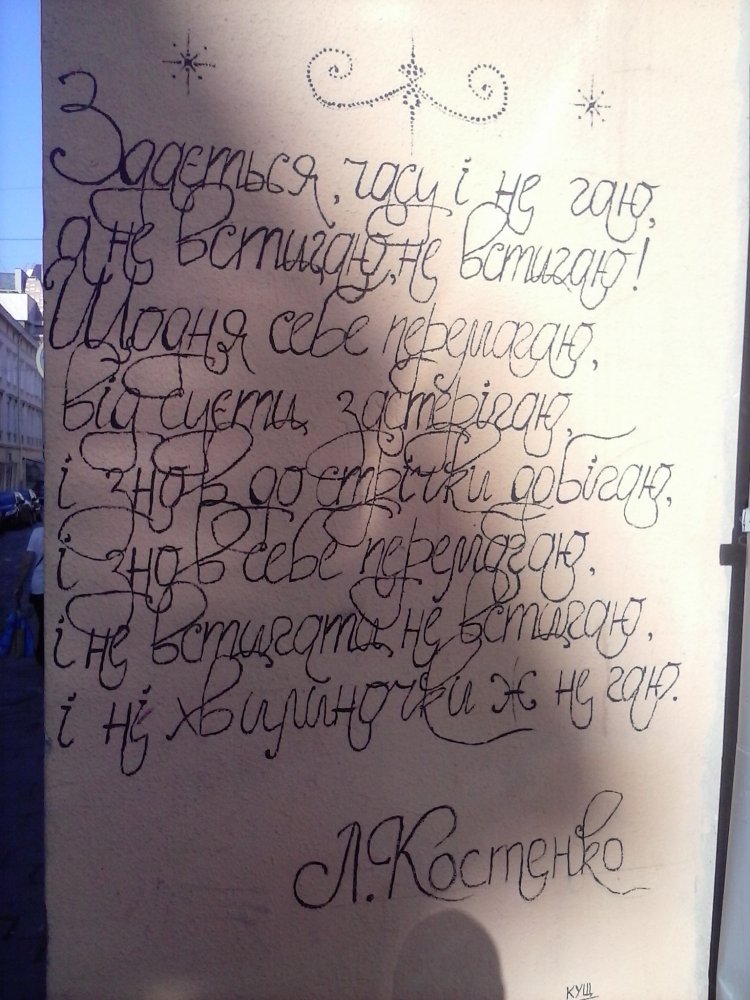 Здається, часу і не гаю,
а не встигаю, не встигаю!
Щодня себе перемагаю,
від суєти застерігаю,
і знов до стрічки добігаю,
і знов себе перемагаю,
і не встигати не встигаю,
і ні хвилиночки ж не гаю.
Л.Костенко
КУЩ